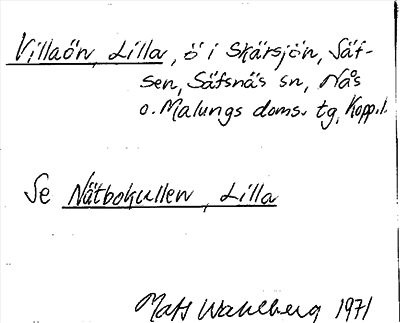 Villaön, Lilla, ö i Skärsjön, Säf-
sen, Säfsnäs sn, Nås
o. Malungs doms. tg, Kopp.l.
Se Nätbokullen, Lilla
Mats Wahlberg 1971